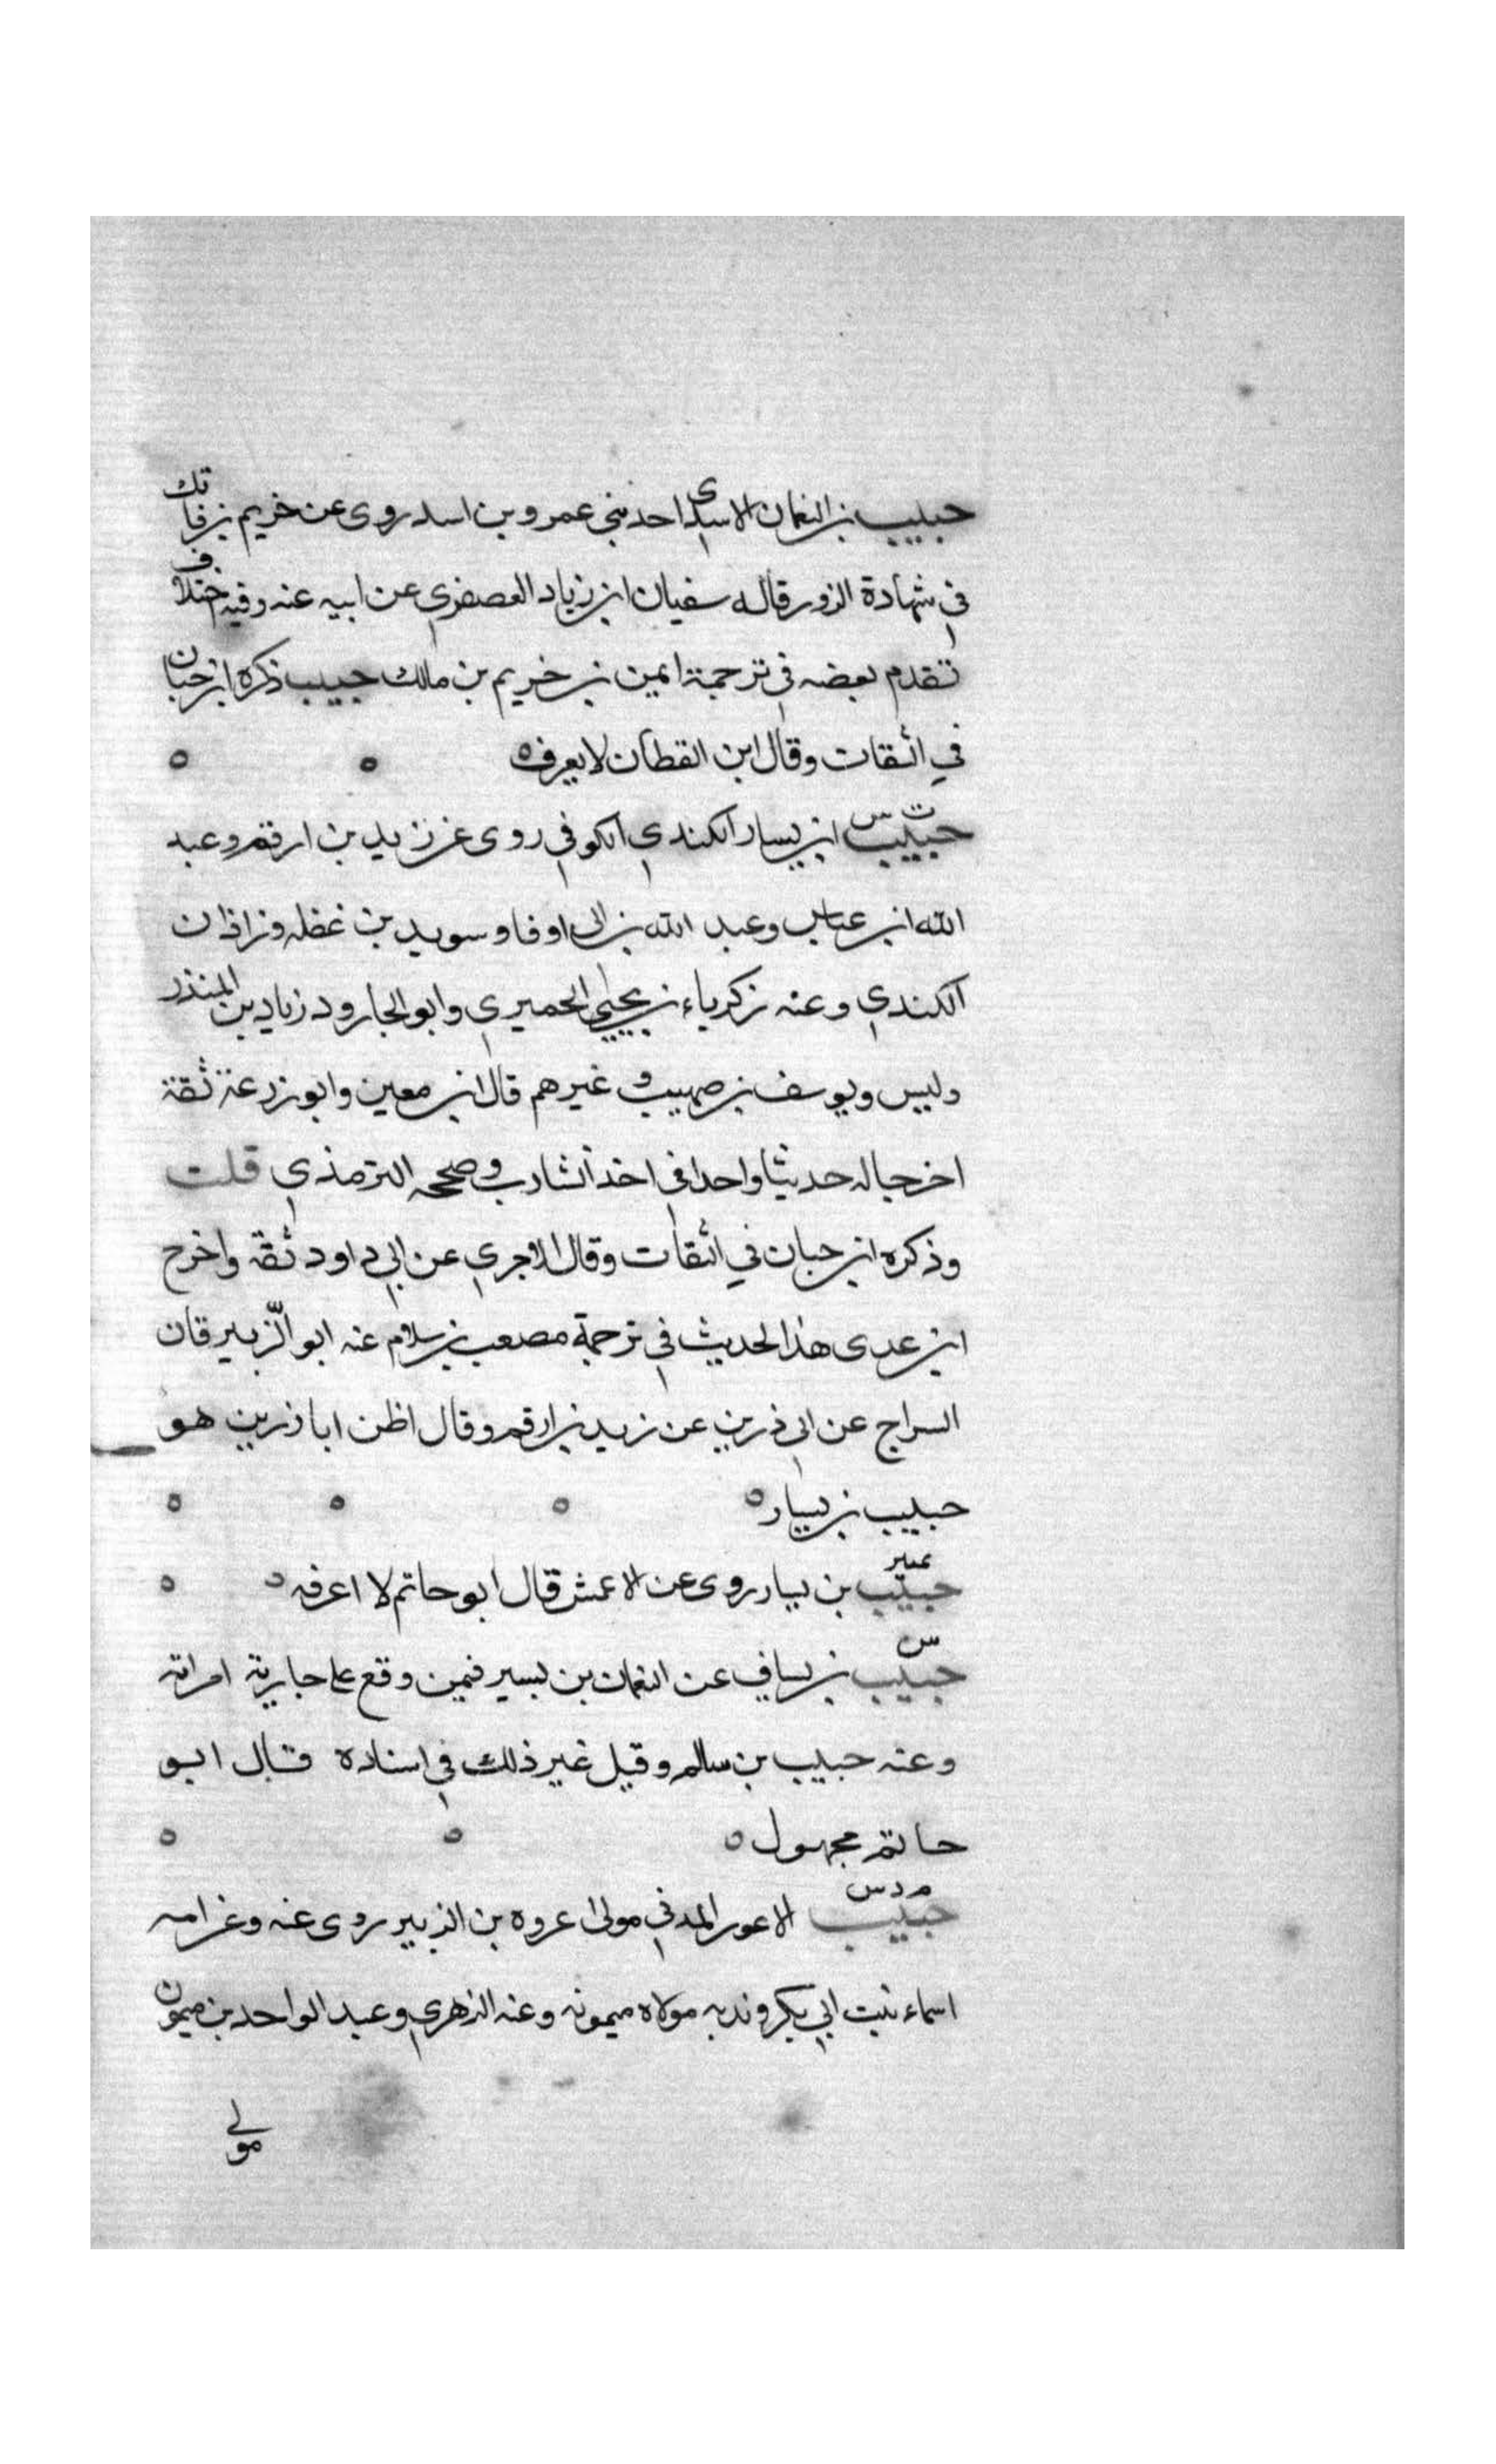 حبيب بن النعمان الاسدي احد بني عمرو بن اسد روى عن خريم بن فاتك
في شهادة الزور قاله سفيان ابن زياد العصفري عن ابيه عنه وفيه اختلاف
تقدم بعضه في ترجمة ايمن بن خريم بن مالك حبيب ذكره ابن حبان
في الثقات وقال ابن القطان لا يعرف ه ه ه
ت س
حبيب ابن يسار الكندي الكوفي روى عن زيد بن ارقم وعبد
الله ابن عباس وعبد الله بن ابي اوفا وسويد بن غفله وزاذان
الكندي وعنه زكرياء بن يحيى الحميري وابو الجارود زياد بن المنذر
وليس ويوسف بن صهيب وغيرهم قال ابن معين وابو زرعة ثقة
اخرجا له حديثا واحدا في اخذ الشارب وصححه الترمذي قلت
وذكره ابن حبان في الثقات وقال الاجري عن ابي داود ثقة واخرج
ابن عدى هذا الحديث في ترجمة مصعب بن سلام عنه ابو الزبير قان
السراج عن ابي ذرين عن زيد بن ارقم وقال اظن ابا زرين هو
حبيب بن يسار ه ه ه ه
تمييز
حبيب بن يسار روى عن الاعمش قال ابو حاتم لا اعرفه ه ه
س
حبيب بن يساف عن النعمان بن بسير فيمن وقع على جارية امراته
وعنه حبيب بن سالم وقيل غير ذلك في اسناده قال ابو
حاتم مجهول ه ه ه
م د س
حبيب الاعور المدني مولى عروه بن الزبير روى عنه وعن امه
اسماء بنت ابي بكر وندبه مولاه ميمونه وعنه الزهري وعبد الواحد بن ميمون
مولى